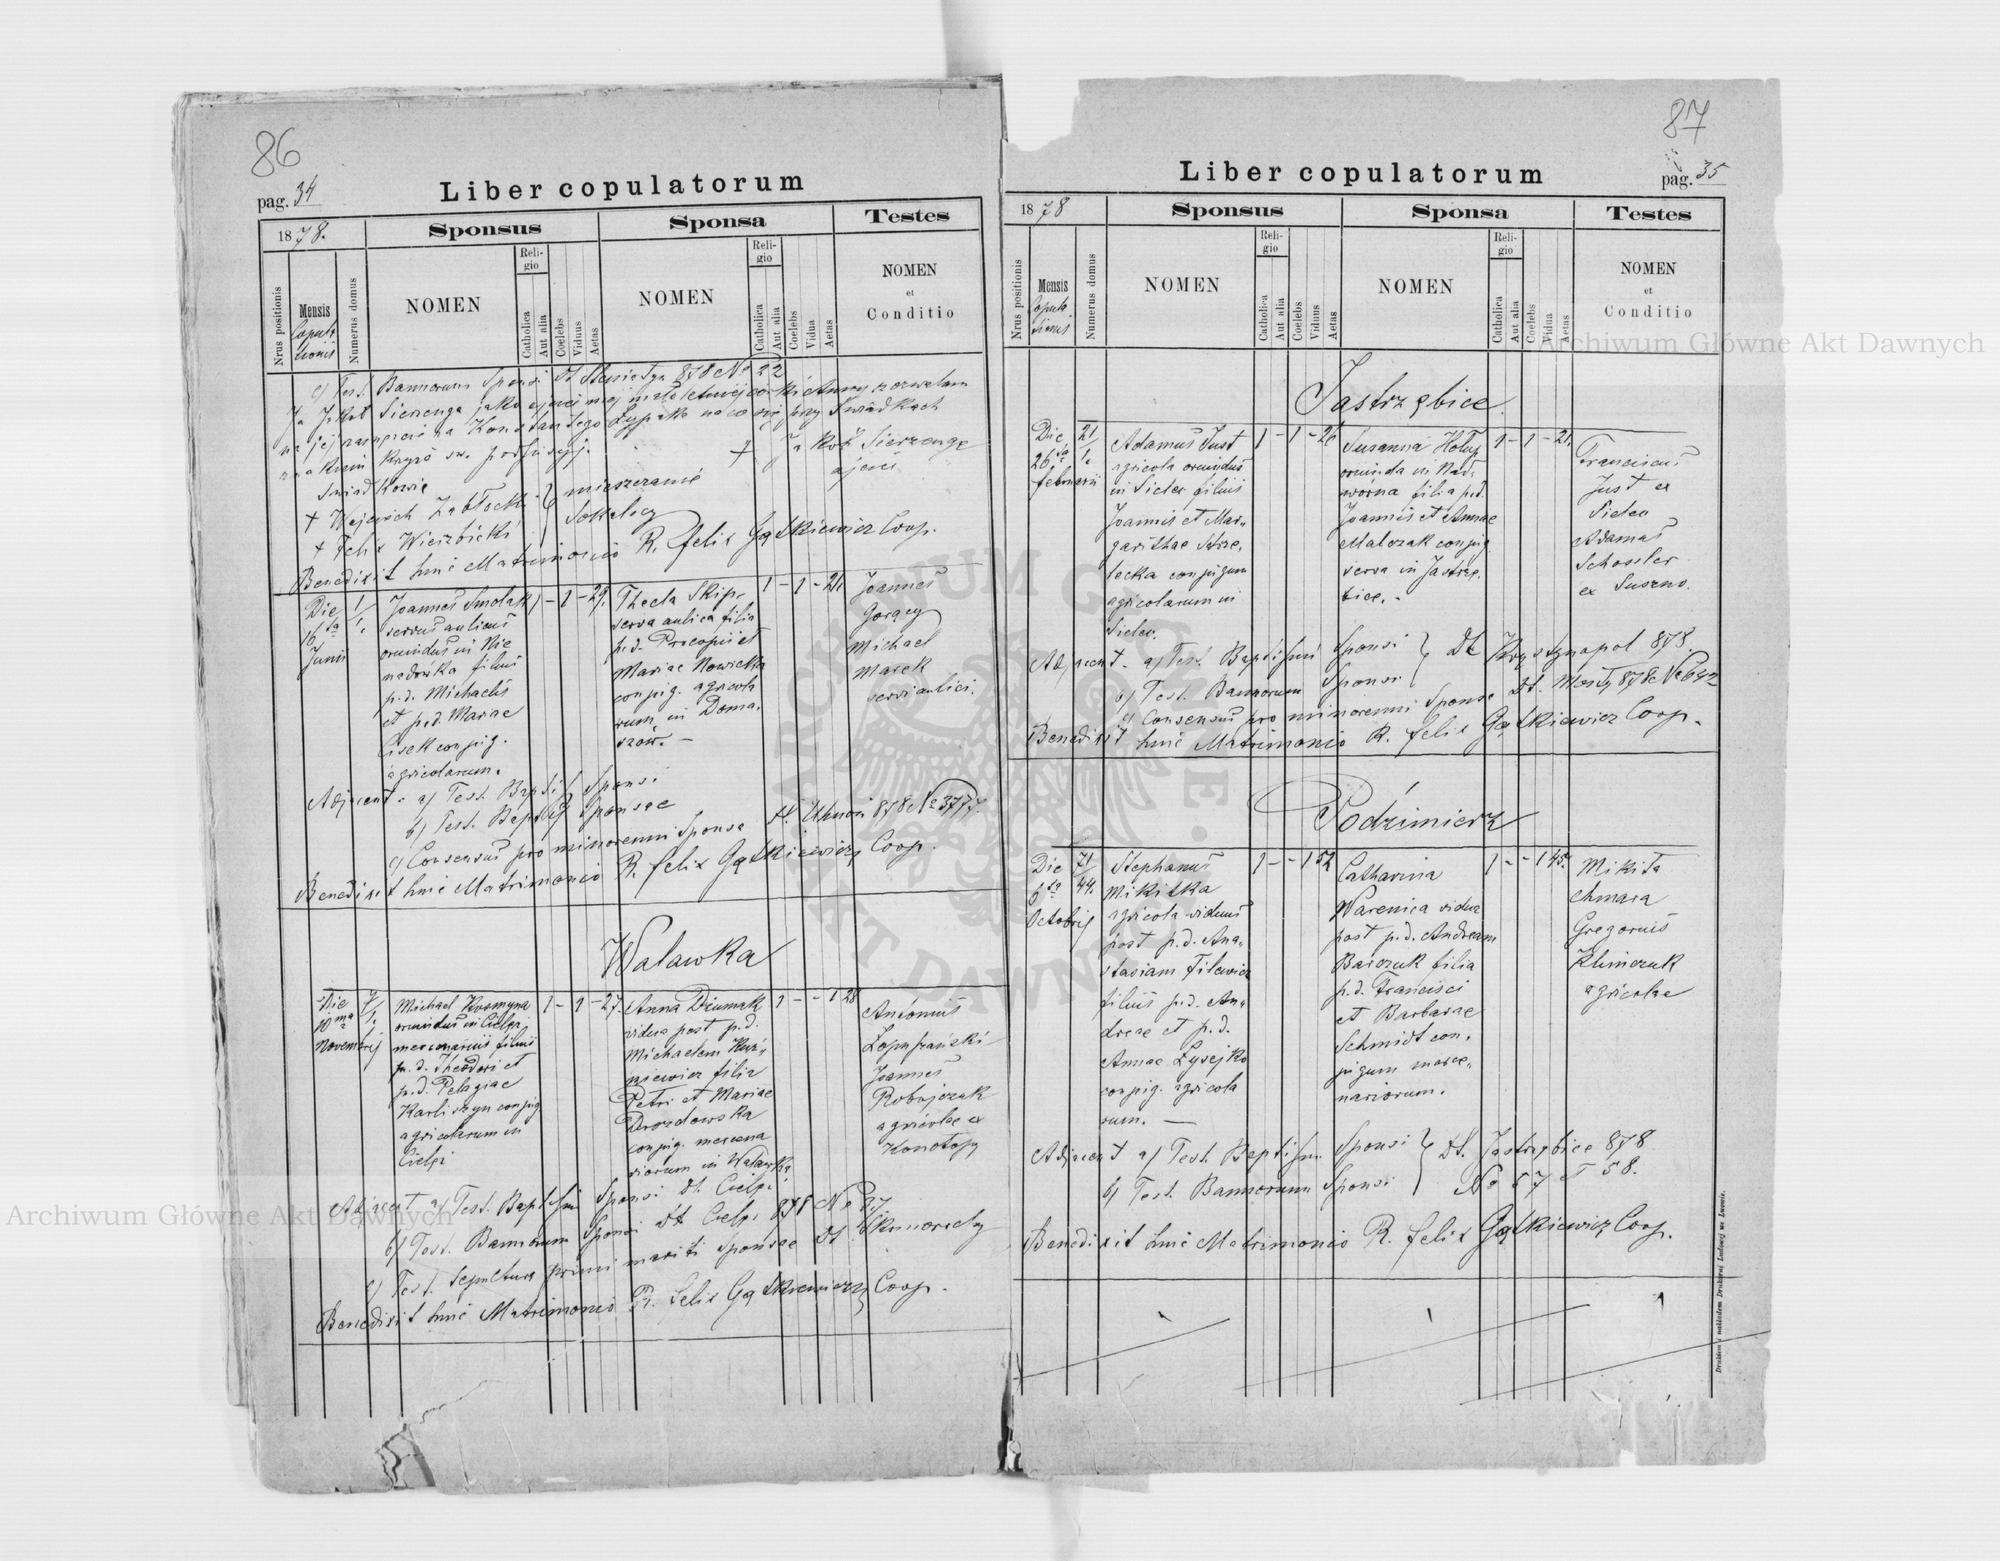 86
pag. 34
Liber copulatorum
1878.
Sponsus
Sponsa
Testes
Nrus positionis
Mensis
Copula
tionis
Numerus domus
NOMEN
Reli-
gio
Catholica
Aut alia
Coelebs
Viduus
Aetas
NOMEN
Reli-
gio
Catholica
Aut alia
Coelebs
Vidua
Aetas
NOMEN
et
Conditio
c) Test. Bannorum Sponsi 878 No 22
Ja Jakób Sierzenga jako ojciec mej małoletniej córki Anny zezwalam
na jej zamęście za Konstantego na co się przy świadkach
znakiem krzyża św. podpisuję.
+ Jakób Sierzenga
ojciec
Świadkowie
+ Wojciech Zabłocki
+ Felix Wierzbicki
mieszczanie
Sokalscy
Benedixit huic Matrimonio R. Felix Gątkiewicz Coop.
Die
16ta
Junii
1/1.
Joannes Smolak
servus aulicus
oriundus in Nie
nadówka filius
p.d. Michaelis
et p.d. Mariae
Cisek conjug.
agricolarum.
1 - 1 - 29.
Thecla Skip.
serva aulica filia
p.d. Procopii et
Mariae Nowicka
conjug. agricola
rum in Doma.
szów. -
1 - 1 - 21.
Joannes
Gorący
Michael
Marek
servi aulici.
Adjacent. a) Test. Baptis Sponsi
b) Test. Baptis Sponsae
c) Consensus pro minorenni Sponsa dt. Uhnów 878 No 3777.
Benedixit huic Matrimonio R. Felix Gątkiewicz Coop.
Waławka
Die
10ma
Novembris
7/1.
Michael Kosmyna
oriundus in Cielęż
mercenarius filius
p.d. Theodori et
p.d. Pelagiae
Karliszyn conjug
agricolarum in
Cielęż
1 - 1 - 27.
Anna Dziumak
vidua post p.d.
Michaelem Kuź-
niewicz filia
Petri et Mariae
Drozdowska
conjug. mercena
riorum in Waławka
1 - - 1 28
Antonius
Łopuszański
Joannes
Robajczuk
agricolae ex
Konotopy
Adjacent a) Test. Baptism Sponsi dt. Cielęż
b) Test. Bannorum Sponsi dt Cielęż 878 No 37
c) Test. Sepultura primi mariti Sponsae dt. Skomorochy
Benedixit huic Matrimonio R. Felix Gątkiewicz Coop.
87
Liber copulatorum
pag. 35
1878
Sponsus
Sponsa
Testes
Nrus positionis
Mensis
Copula
tionis
Numerus domus
NOMEN
Reli-
gio
Catholica
Aut alia
Coelebs
Viduus
Aetas
NOMEN
Reli-
gio
Catholica
Aut alia
Coelebs
Vidua
Aetas
NOMEN
et
Conditio
Jastrzębice.
Die
26ta
februarii
21/1.
Adamus Just
agricola oriundus
in Sielec filius
Joannis et Mar-
garithae Strze.
lecka conjugum
agricolarum in
Sielec.
1 - 1 - 26
Susanna Hołup
oriunda in Nad-
wórna filia p.d.
Joannis et Annae
Malczak conjug
serva in Jastrzę.
bice. -
1 - 1 - 21.
Franciscus
Just ex
Sielec
Adamus
Schossler
ex Suszno.
Adjacent. a) Test. Baptismi Sponsi
b) Test. Bannorum Sponsi
Dt Krystynopol 878.
c) Consensus pro minorenni Sponsa Dt. Mosty 878 No 642
Benedixit huic Matrimonio R. Felix Gątkiewicz Coop.
Podzimierz
Die
6ta
Octobris
71/44.
Stephanus
Mikitka
agricola viduus
post p.d. Ana-
stasiam Filewicz
filius p.d. An-
dreae et p.d.
Annae Łysejko
conjug. agricola
rum. —
1 - - 1 52
Catharina
Warenica vidua
post p.d. Andream
Baiczuk filia
p.d. Francisci
et Barbarae
Schmidt con.
jugum merce-
nariorum.
1 - - 1 45.
Mikita
Chmara
Gregorius
Klimczuk
agricolae
Adjacent a) Test. Baptism. Sponsi
b) Test. Bannorum Sponsi
Dt. Jastrzębice 878
No 57 I 58.
Benedixit huic Matrimonio R. Felix Gątkiewicz Coop.
Drukiem i nakładem Drukarni Ludowej we Lwowie.
Archiwum Główne Akt Dawnych
Archiwum Główne Akt Dawnych
ARCHIWUM GŁÓWNE AKT DAWNYCH